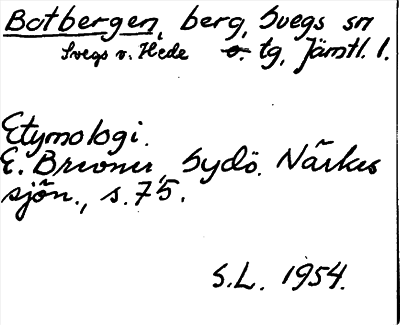 Botbergen, berg, Svegs sn
Svegs v. Hede o. tg, Jämtl. l.
Etymologi.
E. Brevner, Sydö. Närkes
sjön., s. 75.
S.L. 1954.